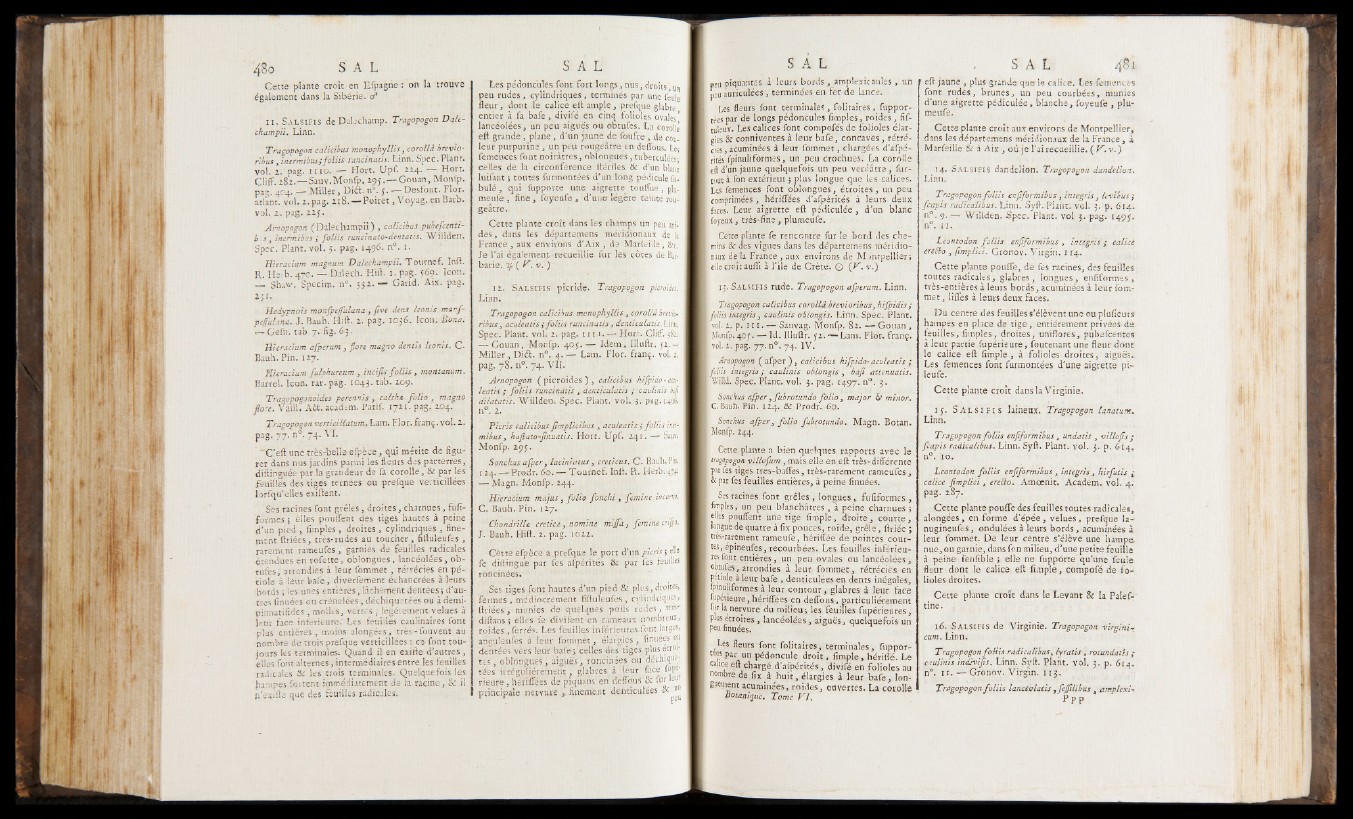 480 S A L
Cette plante croît en Espagne : on la trouve
également dans la Sibérie. ♂
11. SALSIFIS de Dalechamp. Tragopogon Dale-
champii. Linn.
Tragopogon calicibus monophyllis, corollâ brevio-
ribus, inermibus; foliis runcinatis. Linn. Spec. Plant.
vol. 2. pag. 1110. — Hort. Upf. 224. — Hort.
Cliff. 382. — Sauv. Monsp. 295. — Gouan, Monsp.
pag. 404. — Miller, Dict. n°. 5. — Desfont. Flor.
atlant. vol. 2. pag. 218. — Poiret, Voyag. en Barb.
vol. 2. pag. 225.
Arnopogon (Dalechampii), calicibus pubescenti-
b s, inermibus; foliis runcinato-dentatis. Willden.
Spec. Plant. vol. 3. pag. 1496. n°. 1.
Hieracium magnum Dalechampii. Tournef. Inst.
R. Herb. 470. — Dalech. Hist. 1. pag. 569. Icon.
— Shaw. Specim. n°. 352. — Garid. Aix. pag.
231.
Hedypnois monspessulana, sive dens leonis mons-
pessulana. J. Bauh. Hist. 2. pag. 1036. Icon. Bona.
— Gesn. tab. 7. fig. 63.
Hieracium asperum, flore magno dentis leonis. C.
Bauh. Pin. 127.
Hieracium sulphureum, incisis foliis, montanum.
Barrel. Icon. rar. pag. 1043. tab. 209.
Tragopogonoides perennis, calthæ folio, magno
flore. Vaill. Act. academ. Paris. 1721. pag. 204.
Tragopogon verticillatum. Lam. Flor. franç. vol. 2.
pag. 77. n°. 74. VI.
C'est une très-belle espèce, qui mérite de figu-
rer dans nos jardins parmi les fleurs des parterres,
distinguée par la grandeur de sa corolle, & par les
feuilles des tiges ternées ou presque verticillées
lorsqu'elles existent.
Ses racines sont grêles, droites, charnues, fusi-
formes; elles poussent des tiges hautes à peine
d'un pied, simples, droites, cylindriques, fine-
ment striées, très-rudes au toucher, fistuleuses,
rarement rameuses, garnies de feuilles radicales
étendues en rosette, oblongues, lancéolées, ob-
tuses, arrondies à leur sommet, rétrécies en pé-
tiole à leur base, diversement échancrées à leurs
bords; les unes entières, lâchement dentées; d'au-
tres sinuées ou crénelées, déchiquetées ou à demi-
pinnatifides, molles, vertes, légérement velues à
leur face inférieure. Les feuilles caulinaires sont
plus entières, moins alongées, très-souvent au
nombre de trois presque verticillées : ce sont tou-
jours les terminales. Quand il en existe d'autres,
elles sont alternes, intermédiaires entre les feuilles
radicales & les trois terminales. Quelquefois les
hampes sortent immédiatement de la racine, & il
n'existe que des feuilles radicales.
S A L
Les pédoncules sont fort longs, nus, droits, un
peu rudes, cylindriques, terminés par une seule
fleur, dont le calice est ample, presque glabre,
entier à sa base, divisé en cinq folioles ovales,
lancéolées, un peu aiguës ou obtuses. La corolle
est grande, plane, d'un jaune de soufre, de cou-
leur purpurine, un peu rougeâtre en dessous. Les
semences sont noirâtres, oblongues, tuberculées;
celles de la circonférence stériles & d'un blanc
luisant; toutes surmontées d'un long pédicule fis-
tulé, qui supporte une aigrette touffue, plu-
meuse, fine, soyeuse, d'une légère teinte rou-
geâtre.
Cette plante croît dans les champs un peu hu-
mides, dans les départemens méridionaux de la
France, aux environs d'Aix, de Marseille, &c.
Je l'ai également recueillie sur les côtes de Bar-
barie. ♃ (V. v.)
12. SALSIFIS picride. Tragopogon picroides.
Linn.
Tragopogon calicibus monophyllis, corollâ brevio-
ribus, aculeatis; foliis runcinatis, denticulatis. Linn.
Spec. Plant. vol. 2. pag. 1111. — Hort. Cliff. 382.
— Gouan, Monsp. 405. — Idem, Illustr. 52. —
Miller, Dict. n°. 4. — Lam. Flor. franç. vol. 2.
pag. 78. n°. 74. VII.
Arnopogon (picroides), calicibus hispido-acu-
leatis; foliis runcinatis, denticulatis; caulinis basi
dilatatis. Willden. Spec. Plant. vol. 3. pag. 1496.
n°. 2.
Picris calicibus simplicibus, aculeatis; foliis iner-
mibus, hastato-sinuatis. Hort. Upf. 241. — Sauv.
Monsp. 295.
Sonchus asper, laciniatus, creticus. C. Bauh. Pin.
124. — Prodr. 60. — Tournef. Inst. R. Herb. 474.
— Magn. Monsp. 244.
Hieracium majus, folio sonchi, semine incurvo.
C. Bauh. Pin. 127.
Chondrilla cretica, nomine missa, semine crispo.
J. Bauh. Hist. 2. pag. 1022.
Cette espèce a presque le port d'un picris; elle
se distingue par ses aspérités & par ses feuilles
roncinées.
Ses tiges sont hautes d'un pied & plus, droites,
fermes, médiocrement fistuleuses, cylindriques,
striées, munies de quelques poils rudes,
distans; elles se divisent en rameaux nombreux,
roides, serrés. Les feuilles inférieures sont larges,
anguleuses à leur sommet, élargies, sinuées ou
dentées vers leur base; celles des tiges plus étroi-
tes, oblongues, aiguës, roncinées ou déchique-
tées irréguliérement, glabres à leur face supé-
rieure, hérissées de piquans en dessous & sur leur
principale nervure, finement denticulées & un
peu
S A L
peu piquantes à leurs bords, amplexicaules, un
peu auriculées, terminées en fer de lance.
Les fleurs sont terminales, solitaires, suppor-
tées par de longs pédoncules simples, roides, fis-
tuleux. Les calices sont composés de folioles élar-
gies & conniventes à leur base, concaves, rétré-
cies, acuminées à leur sommet, chargées d'aspé-
rités spinuliformes, un peu crochues. La corolle
est d'un jaune quelquefois un peu verdâtre, sur-
tout à son extérieur; plus longue que les calices.
Les semences sont oblongues, étroites, un peu
comprimées, hérissées d'aspérités à leurs deux
faces. Leur aigrette est pédiculée, d'un blanc
soyeux, très-fine, plumeuse.
Cette plante se rencontre sur le bord des che-
mins & des vignes dans les départemens méridio-
naux de la France, aux environs de Montpellier;
elle croît aussi à l'île de Crète. ☉ (V. v.)
13. SALSIFIS rude. Tragopogon asperum. Linn.
Tragopogon calicibus corollâ brevioribus, hispidis;
foliis integris, caulinis oblongis. Linn. Spec. Plant.
vol. 2. p. 111. — Sauvag. Monsp. 82. — Gouan,
Monsp. 405. — Id. Illustr. 52. — Lam. Flor. franç.
vol. 2. pag. 77. n°. 74. IV.
Arnopogon (asper), calicibus hispido-aculeatis;
foliis integris; caulinis oblongis, basi attenuatis.
Willd. Spec. Plant. vol. 3. pag. 1497. n°. 3.
Sonchus asper, subrotundo folio, major & minor.
C. Bauh. Pin. 124. & Prodr. 60.
Sonchus asper, folio subrotundo. Magn. Botan.
Monsp. 244.
Cette plante a bien quelques rapports avec le
tragopogon villosum, mais elle en est très-différente
par ses tiges très-basses, très-rarement rameuses,
& par ses feuilles entières, à peine sinuées.
Ses racines sont grêles, longues, fusiformes,
simples, un peu blanchâtres, à peine charnues;
elles poussent une tige simple, droite, courte,
longue de quatre à six pouces, roide, grêle, striée;
très-rarement rameuse, hérissée de pointes cour-
tes, épineuses, recourbées. Les feuilles inférieu-
res sont entières, un peu ovales ou lancéolées,
obtuses, arrondies à leur sommet, rétrécies en
pétiole à leur base, denticulées en dents inégales,
spinuliformes à leur contour, glabres à leur face
supérieure, hérissées en dessous, particuliérement
sur la nervure du milieu; les feuilles supérieures,
plus étroites, lancéolées, aiguës, quelquefois un
peu sinuées.
Les fleurs sont solitaires, terminales, suppor-
tées par un pédoncule droit, simple, hérissé. Le
calice est chargé d'aspérités, divisé en folioles au
nombre de six à huit, élargies à leur base, lon-
guement acuminées, roides, ouvertes. La corolle
Botanique. Tome VI.
S A L 481
est jaune, plus grande que le calice. Les semences
sont rudes, brunes, un peu courbées, munies
d'une aigrette pédiculée, blanche, soyeuse, plu-
meuse.
Cette plante croît aux environs de Montpellier,
dans les départemens méridionaux de la France, à
Marseille & à Aix, où je l'ai recueillie. (V. v.)
14. SALSIFIS dandelion. Tragopogon dandelion.
Linn.
Tragopogon foliis ensiformibus, integris, levibus;
scapis radicalibus. Linn. Syst. Plant. vol. 3. p. 614.
n°. 9. — Willden. Spec. Plant. vol 3. pag. 1495.
n°. 11.
Leontodon foliis ensiformibus, integris; calice
erecto, simplici. Gronov. Virgin. 114.
Cette plante pousse, de ses racines, des feuilles
toutes radicales, glabres, longues, ensiformes,
très-entières à leurs bords, acuminées à leur som-
met, lisses à leurs deux faces.
Du centre des feuilles s'élèvent une ou plusieurs
hampes en place de tige, entiérement privées de
feuilles, simples, droites, uniflores, pubescentes
à leur partie supérieure, soutenant une fleur dont
le calice est simple, à folioles droites, aiguës.
Les semences sont surmontées d'une aigrette pi-
leuse.
Cette plante croît dans la Virginie.
15. SALSIFIS laineux. Tragopogon lanatum.
Linn.
Tragopogon foliis ensiformibus, undatis, villosis;
scapis radicalibus. Linn. Syst. Plant. vol. 3. p. 614.
n°. 10.
Leontodon foliis ensiformibus, integris, hirsutis;
calice simplici, erecto. Amœnit. Academ. vol. 4.
pag. 287.
Cette plante pousse des feuilles toutes radicales,
alongées, en forme d'épée, velues, presque la-
nugineuses, ondulées à leurs bords, acuminées à
leur sommet. De leur centre s'élève une hampe
nue, ou garnie, dans son milieu, d'une petite feuille
à peine sensible; elle ne supporte qu'une seule
fleur dont le calice est simple, composé de fo-
lioles droites.
Cette plante croît dans le Levant & la Palef-
tine.
16. SALSIFIS de Virginie. Tragopogon virgini-
cum. Linn.
Tragopogon foliis radicalibus, lyratis, rotundatis;
caulinis indivisis. Linn. Syst. Plant. vol. 3. p. 614.
n°. 11. — Gronov. Virgin. 113.
Tragopogon foliis lanceolatis, sessilibus, amplexi-
P p p